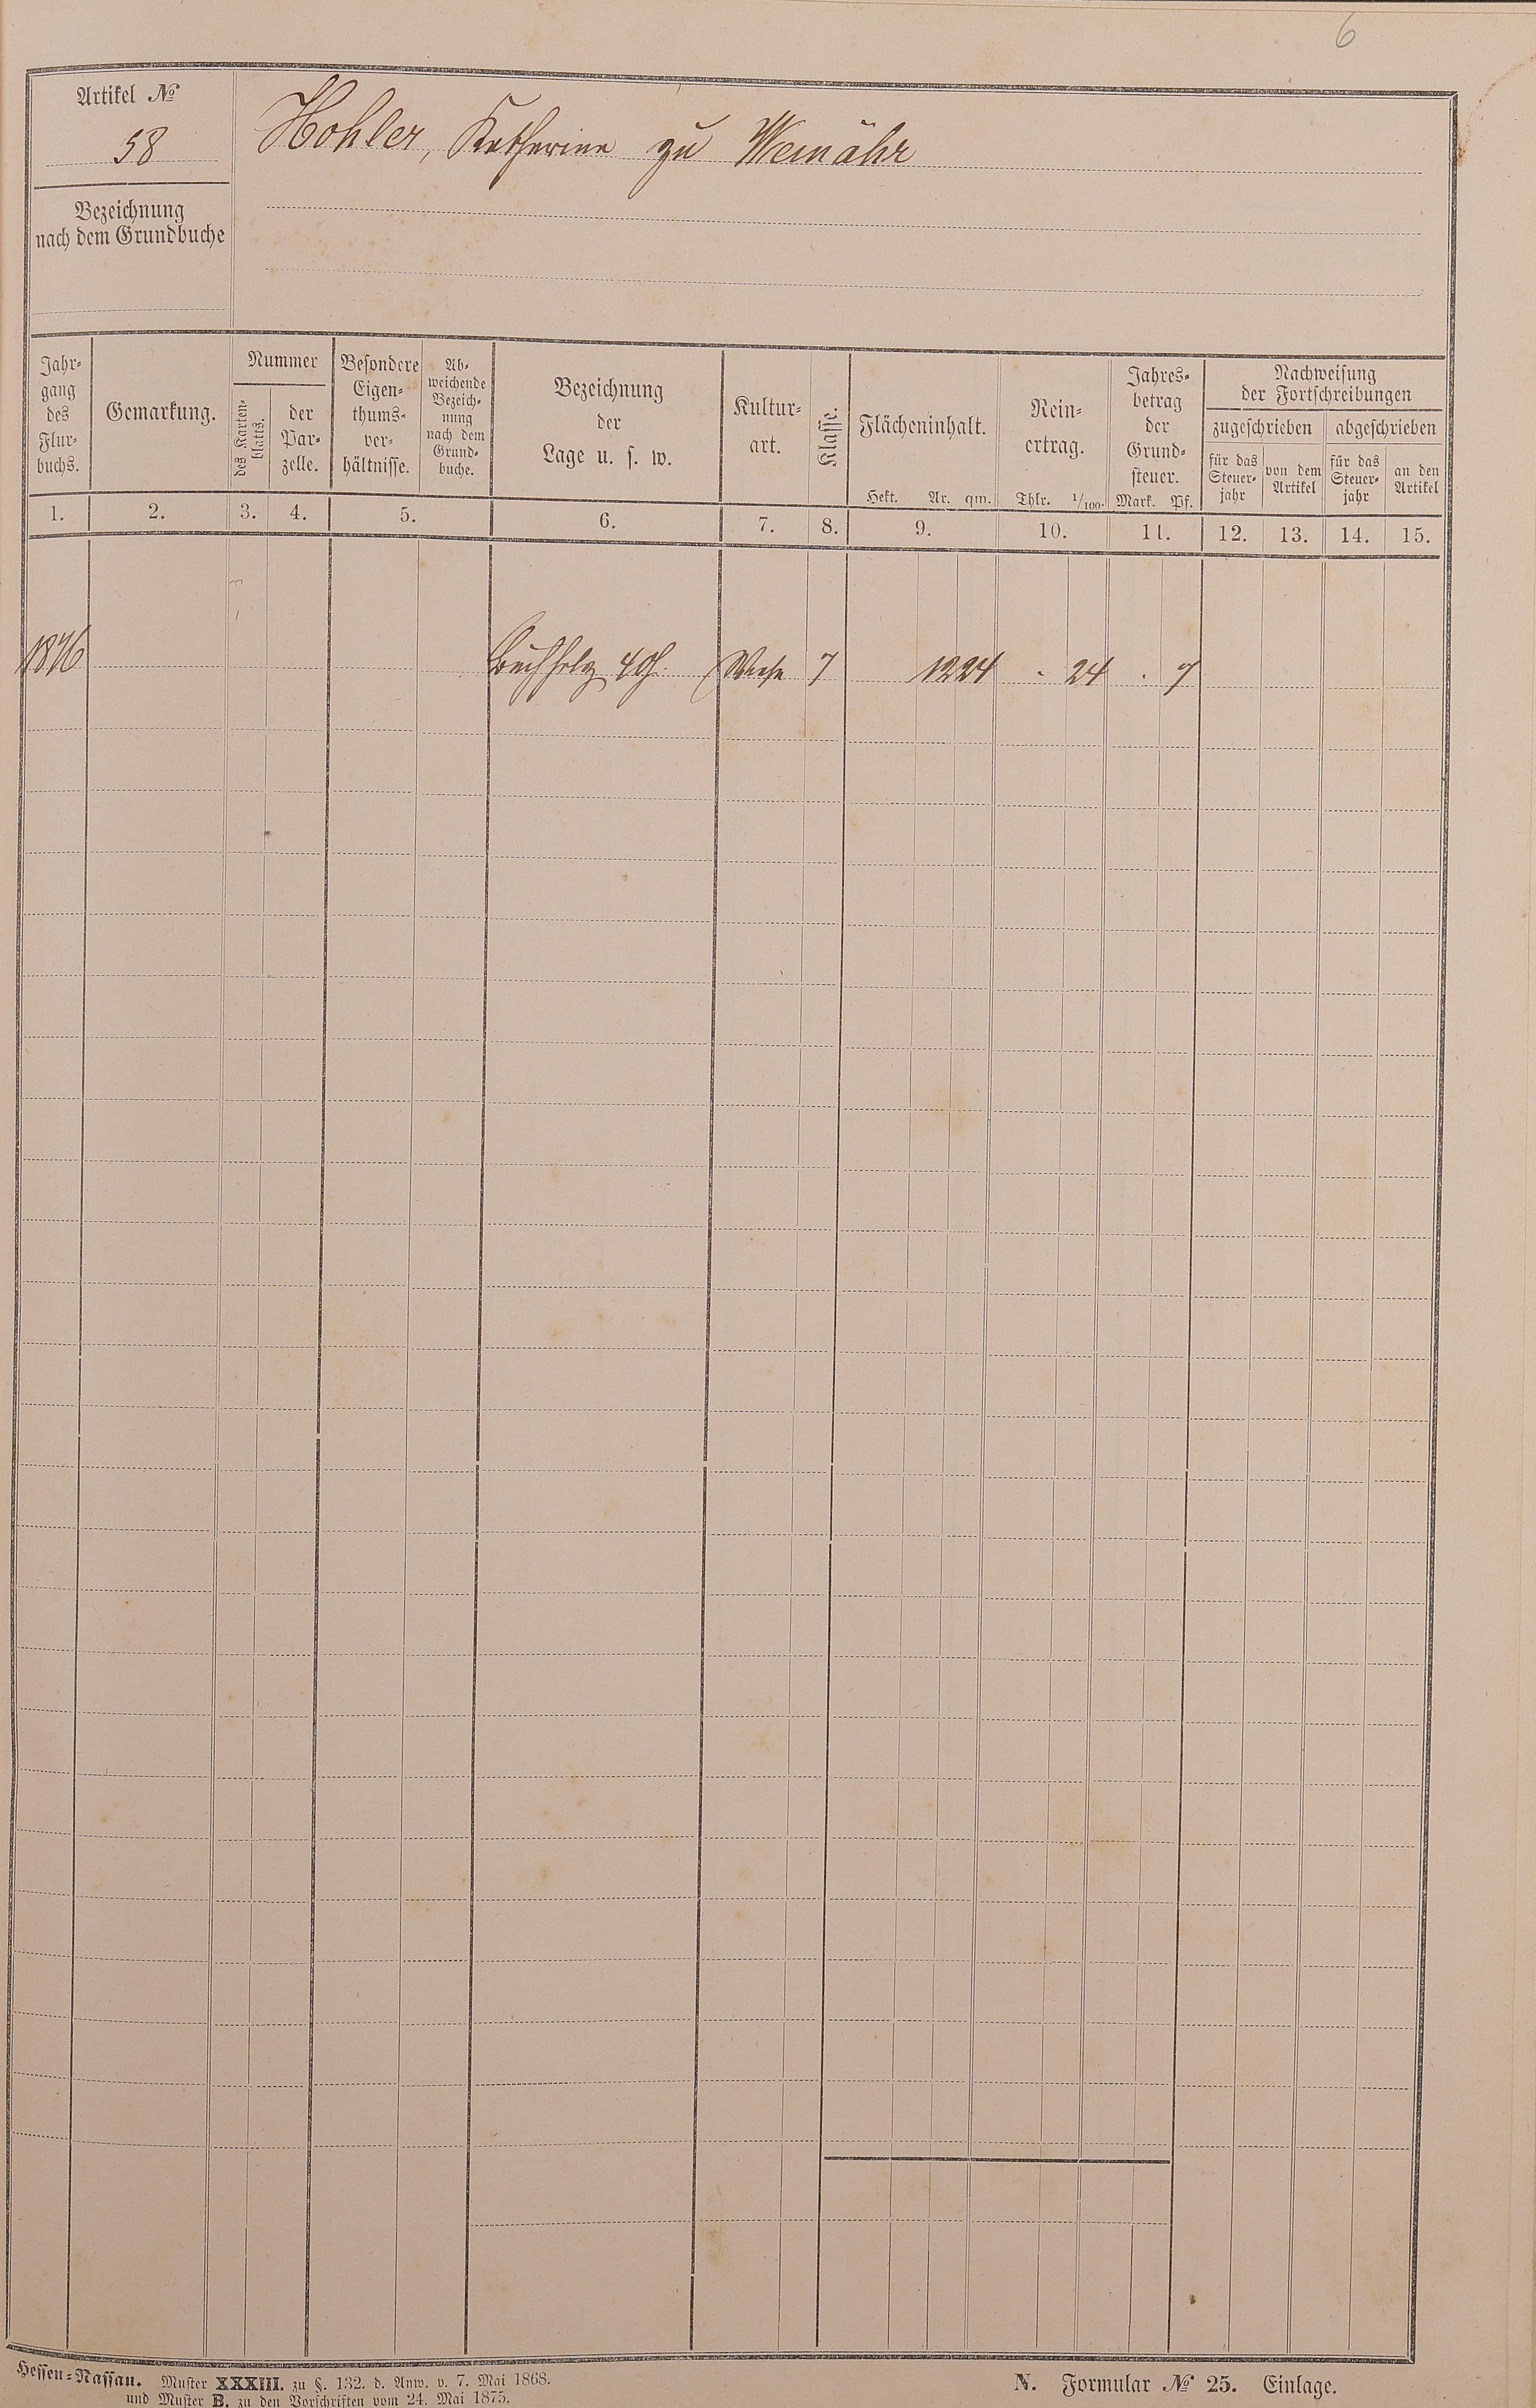 6
Artikel №
58
Hohler, Katharina zu Weinähr
Bezeichnung
nach dem Grundbuche
Jahr-
gang
des
Flur-
buchs.
Gemarkung.
Nummer
des Karten-
blatts.
der
Par-
zelle.
Besondere
Eigen-
thums-
ver-
hältnisse.
Ab-
weichende
Bezeich-
nung
nach dem
Grund-
buche.
Bezeichnung
der
Lage u. s. w.
Kultur-
art.
Klasse.
Flächeninhalt.
Hekt. Ar. qm.
Rein-
ertrag.
Thlr. 1/100.
Jahres-
betrag
der
Grund-
steuer.
Mark. Pf.
Nachweisung
der Fortschreibungen
zugeschrieben abgeschrieben
für das
Steuer-
jahr
von dem
Artikel
für das
Steuer-
jahr
an den
Artikel
1. 2. 3. 4. 5. 6. 7. 8. 9. 10. 11. 12. 13. 14. 15.
1876 Buchholz Wiese 7 1224 . 24 . 7
Hessen-Nassau. Muster XXXIII. zu §. 132. d. Anw. v. 7. Mai 1868.
und Muster B. zu den Vorschriften vom 24. Mai 1875.
N. Formular № 25. Einlage.